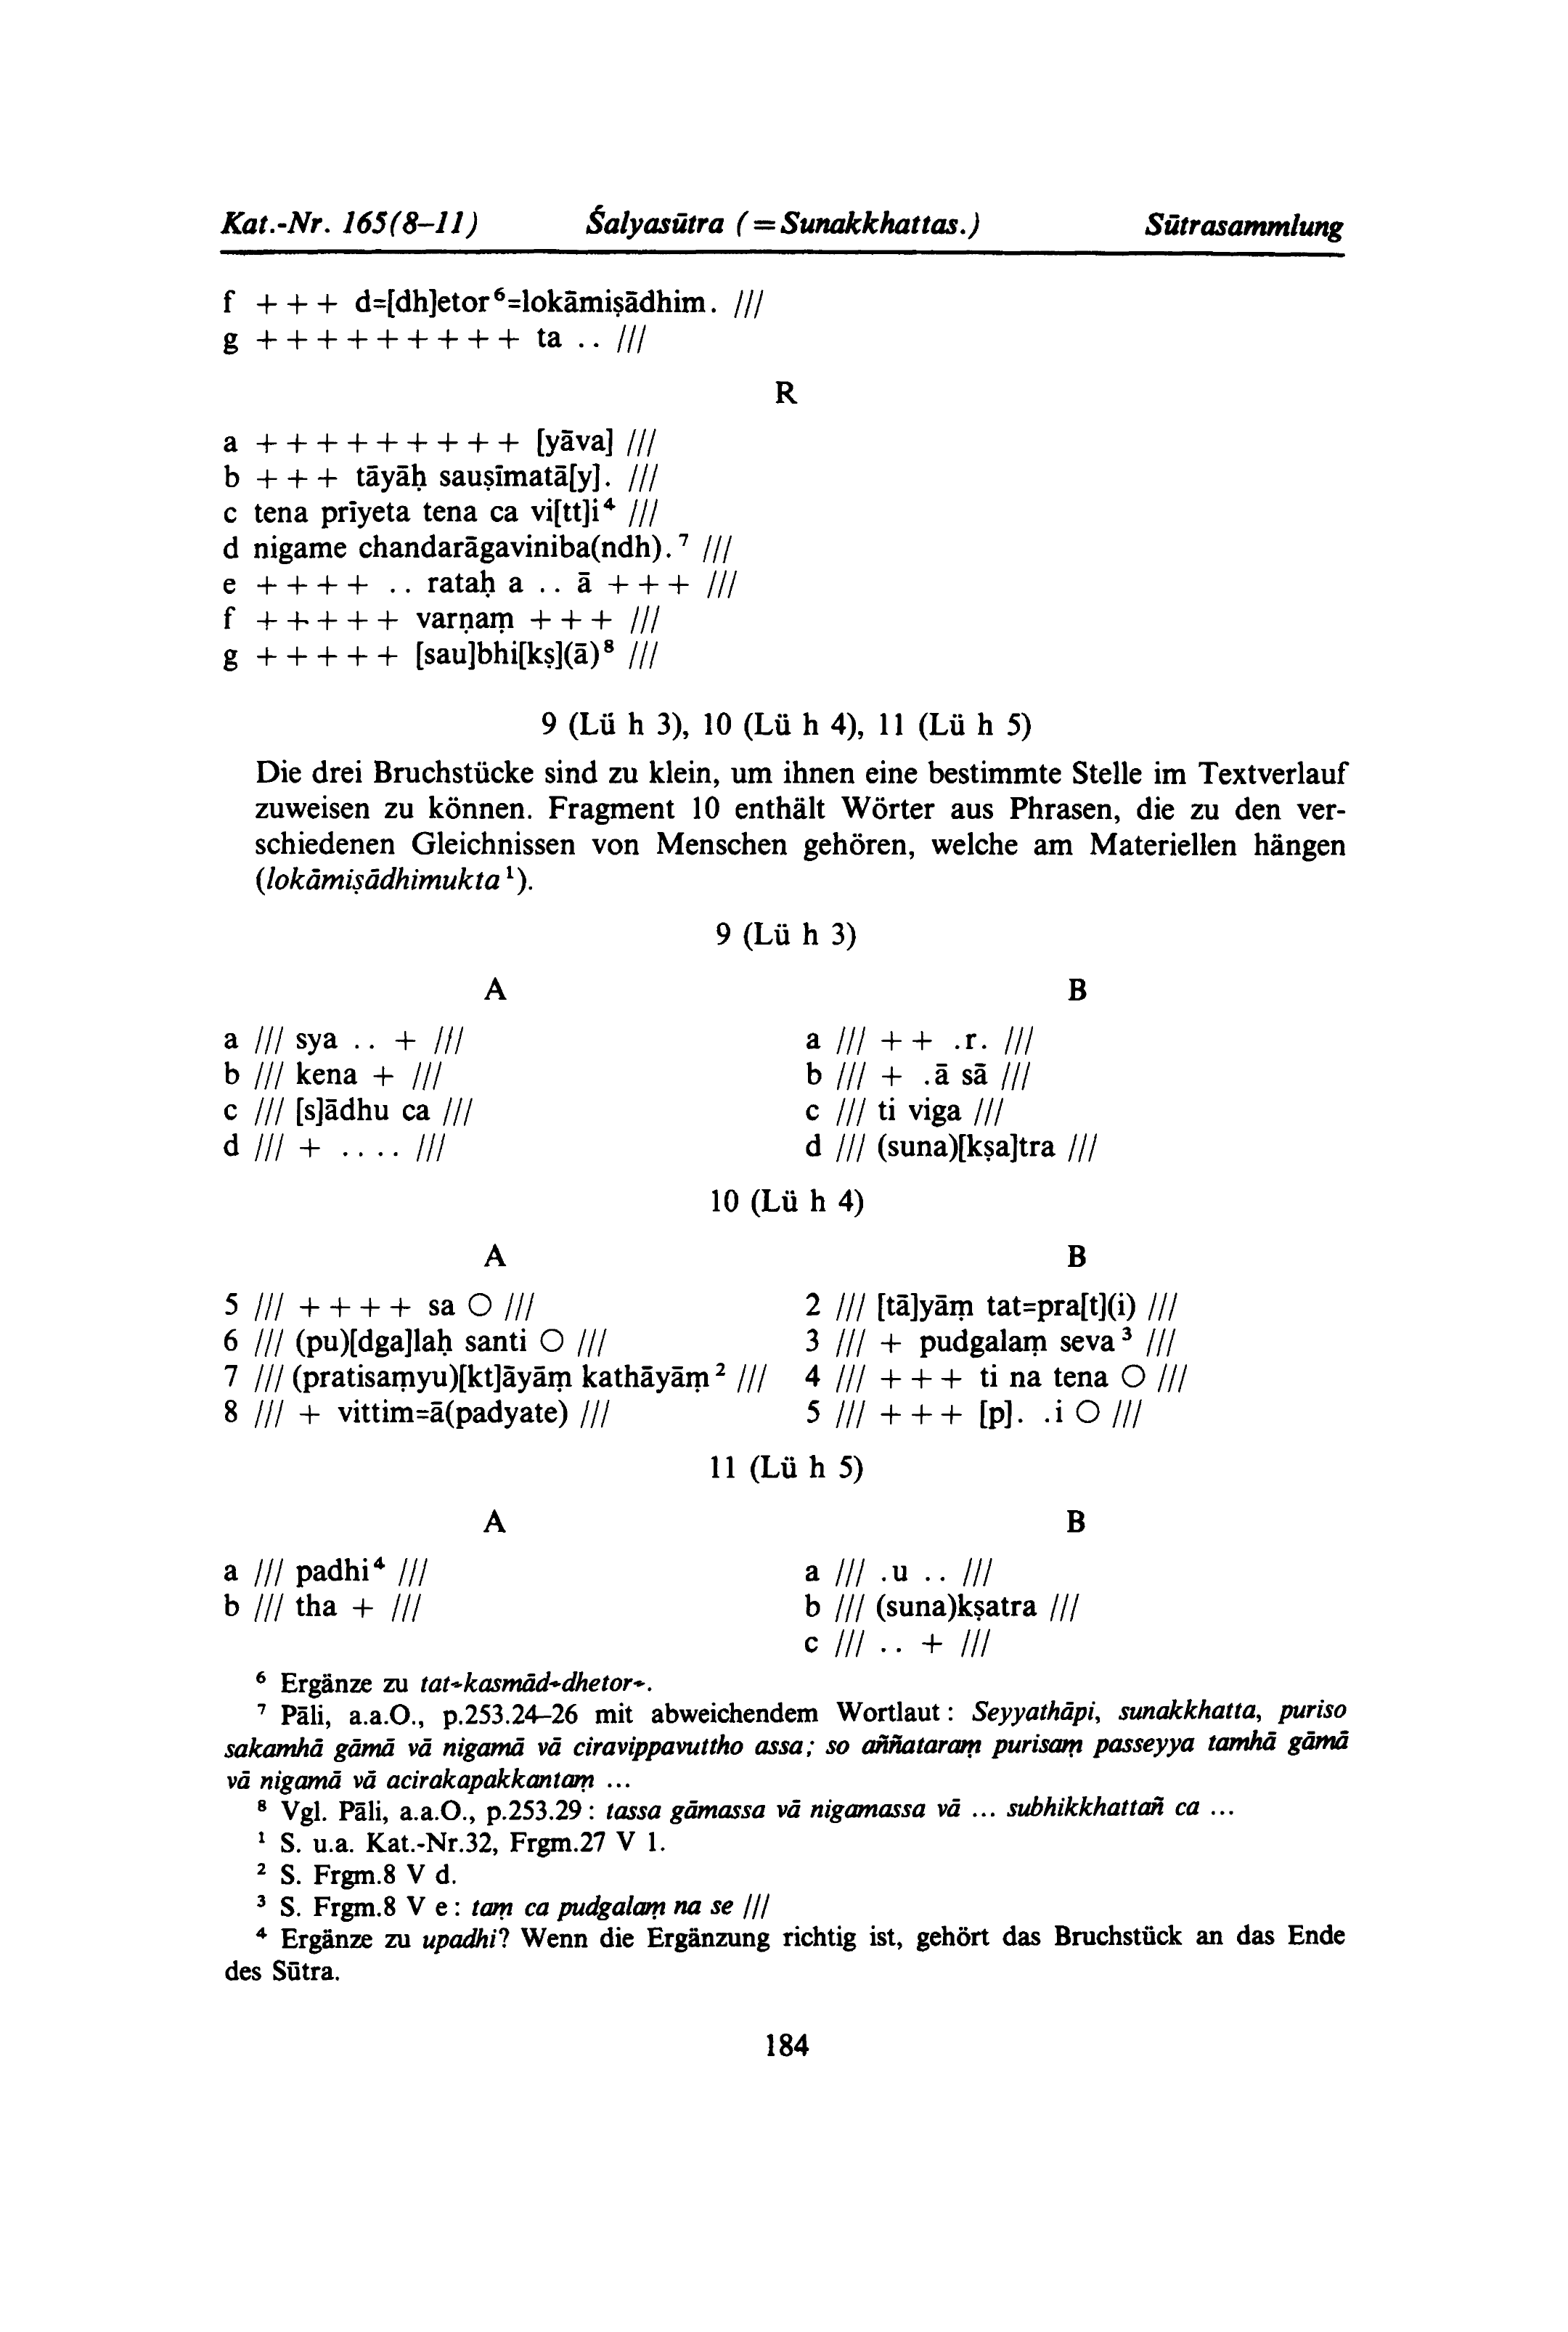 Kat.-Nr. 165(8–11) Śalyasūtra (=Sunakkhattas.) Sūtrasammlung
f + + + d=[dh]etor⁶=lokāmiṣādhim. ///
g + + + + + + + + + ta .. ///
R
a + + + + + + + + + [yāva] ///
b + + + tāyāḥ sauṣīmatā[y]. ///
c tena prīyeta tena ca vi[tt]i⁴ ///
d nigame chandarāgaviniba(ndh).⁷ ///
e + + + + .. rataḥ a .. ā + + + ///
f + + + + + varṇaṃ + + + ///
g + + + + + [sau]bhi[kṣ](ā)⁸ ///
9 (Lü h 3), 10 (Lü h 4), 11 (Lü h 5)
Die drei Bruchstücke sind zu klein, um ihnen eine bestimmte Stelle im Textverlauf
zuweisen zu können. Fragment 10 enthält Wörter aus Phrasen, die zu den ver-
schiedenen Gleichnissen von Menschen gehören, welche am Materiellen hängen
(lokāmiṣādhimukta¹).
9 (Lü h 3)
A B
a /// sya .. + /// a /// + + .r. ///
b /// kena + /// b /// + .ā sā ///
c /// [s]ādhu ca /// c /// ti viga ///
d /// + .... /// d /// (suna)[kṣa]tra ///
10 (Lü h 4)
A B
5 /// + + + + sa ○ /// 2 /// [tā]yāṃ tat=pra[t](i) ///
6 /// (pu)[dga]laḥ santi ○ /// 3 /// + pudgalaṃ seva³ ///
7 /// (pratisaṃyu)[kt]āyāṃ kathāyāṃ² /// 4 /// + + + ti na tena ○ ///
8 /// + vittim=ā(padyate) /// 5 /// + + + [p]. .i ○ ///
11 (Lü h 5)
A B
a /// padhi⁴ /// a /// .u .. ///
b /// tha + /// b /// (suna)kṣatra ///
c /// .. + ///
⁶ Ergänze zu tat=kasmād=dhetor=.
⁷ Pāli, a.a.O., p.253.24–26 mit abweichendem Wortlaut: Seyyathāpi, sunakkhatta, puriso
sakamhā gāmā vā nigamā vā ciravippavuttho assa; so aññataraṃ purisaṃ passeyya tamhā gāmā
vā nigamā vā acirakapakkantaṃ ...
⁸ Vgl. Pāli, a.a.O., p.253.29: tassa gāmassa vā nigamassa vā ... subhikkhattañ ca ...
¹ S. u.a. Kat.-Nr.32, Frgm.27 V 1.
² S. Frgm.8 V d.
³ S. Frgm.8 V e: taṃ ca pudgalaṃ na se ///
⁴ Ergänze zu upadhi? Wenn die Ergänzung richtig ist, gehört das Bruchstück an das Ende
des Sūtra.
184